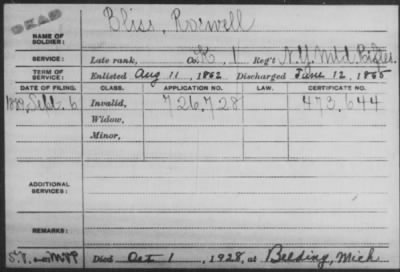 DEAD
Bliss, Roswell
NAME OF SOLDIER:
SERVICE: Late rank, Co. K, 1 Reg't N.Y. Mtd. Rifles.
TERM OF SERVICE: Enlisted Aug 11, 1862 Discharged June 12, 1865
DATE OF FILING. CLASS. APPLICATION NO. LAW. CERTIFICATE NO.
1889, Sept. 6 Invalid, 726,728 473,644
Widow,
Minor,
ADDITIONAL SERVICES:
REMARKS:
Died Oct 1, 1928, at Belding, Mich